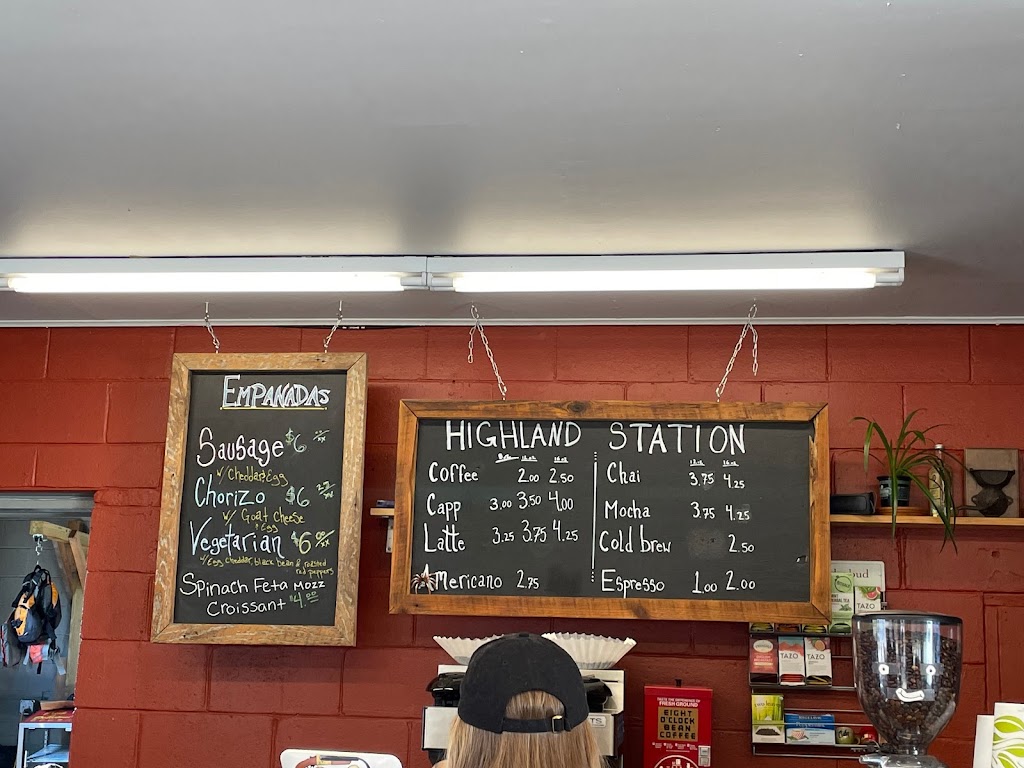 EMPANADAS
Sausage $6
w/ Cheddar, Egg
Chorizo $6
w/ Goat Cheese
& Egg
Vegetarian $6
w/ Egg, cheddar, black bean & roasted
red peppers
Spinach Feta Mozz
Croissant $4.00
HIGHLAND STATION
8oz 12oz 16oz
Coffee 2.00 2.50
Capp 3.00 3.50 4.00
Latte 3.25 3.75 4.25
Americano 2.75
12oz 16oz
Chai 3.75 4.25
Mocha 3.75 4.25
Cold brew 2.50
Espresso 1.00 2.00
TAZO
TAZO
TAZO
FRESH GROUND
EIGHT
O'CLOCK
BEAN
COFFEE